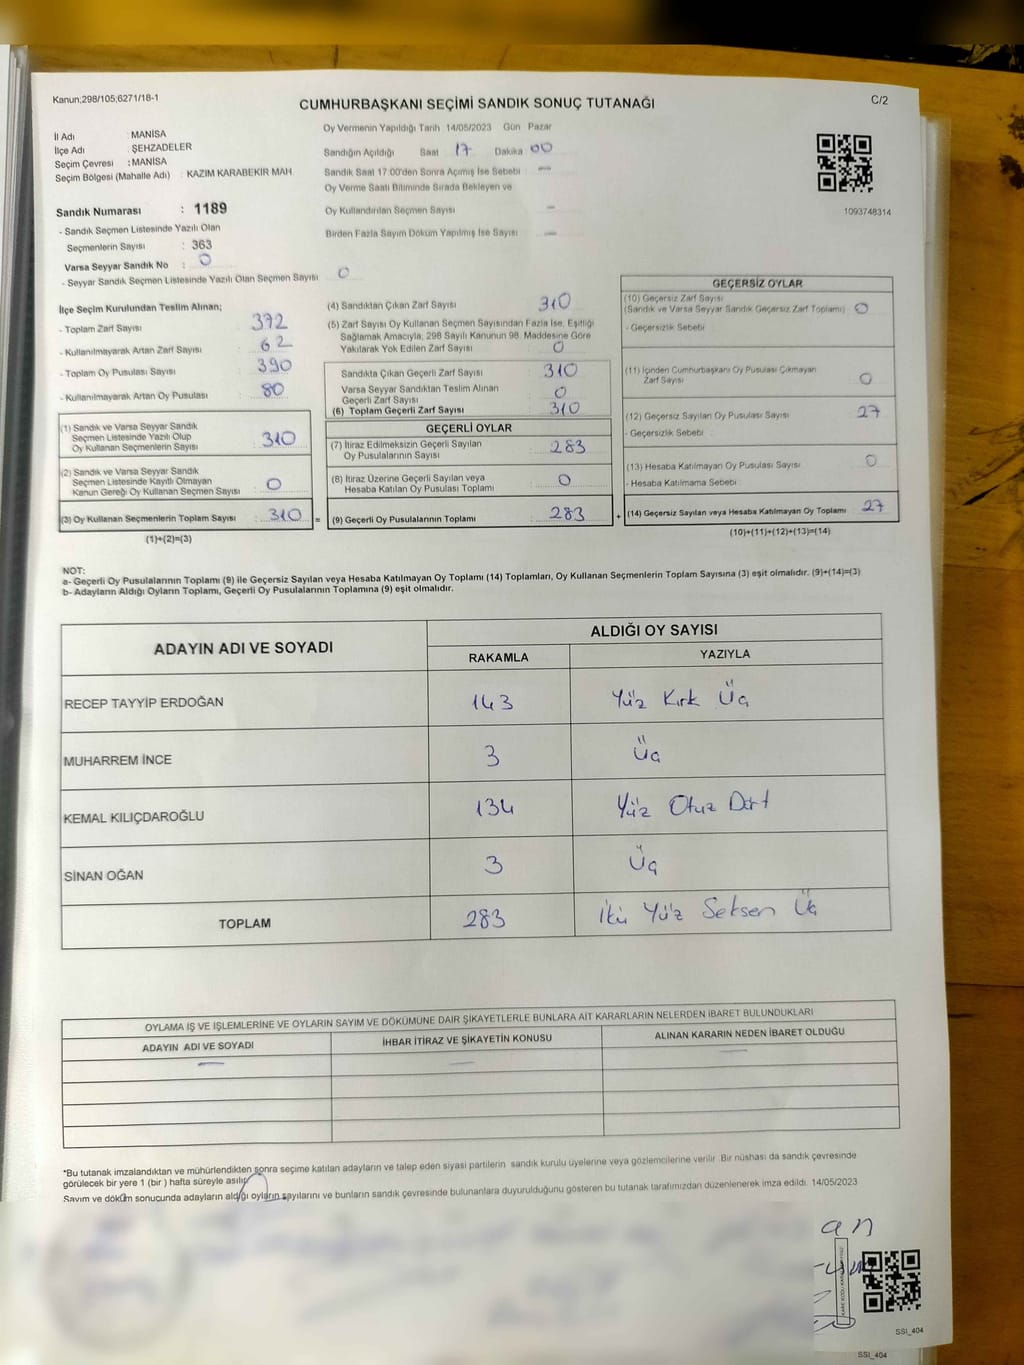 Kanun;298/105;6271/18-1
CUMHURBAŞKANI SEÇİMİ SANDIK SONUÇ TUTANAĞI
C/2
İl Adı : MANİSA
İlçe Adı : ŞEHZADELER
Seçim Çevresi : MANİSA
Seçim Bölgesi (Mahalle Adı) : KAZIM KARABEKİR MAH.
Sandık Numarası : 1189
- Sandık Seçmen Listesinde Yazılı Olan
Seçmenlerin Sayısı : 363
Varsa Seyyar Sandık No : 0
- Seyyar Sandık Seçmen Listesinde Yazılı Olan Seçmen Sayısı : 0
Oy Vermenin Yapıldığı Tarih 14/05/2023 Gün Pazar
Sandığın Açıldığı Saat 17 Dakika 00
Sandık Saat 17:00'den Sonra Açımış İse Sebebi : —
Oy Verme Saati Bitiminde Sırada Bekleyen ve
Oy Kullandırılan Seçmen Sayısı —
Birden Fazla Sayım Döküm Yapılmış İse Sayısı —
1093748314
İlçe Seçim Kurulundan Teslim Alınan;
- Toplam Zarf Sayısı : 372
- Kullanılmayarak Artan Zarf Sayısı : 62
- Toplam Oy Pusulası Sayısı : 390
- Kullanılmayarak Artan Oy Pusulası : 80
(1) Sandık ve Varsa Seyyar Sandık
Seçmen Listesinde Yazılı Olup
Oy Kullanan Seçmenlerin Sayısı : 310
(2) Sandık ve Varsa Seyyar Sandık
Seçmen Listesinde Kayıtlı Olmayan
Kanun Gereği Oy Kullanan Seçmen Sayısı : 0
(3) Oy Kullanan Seçmenlerin Toplam Sayısı : 310 =
(1)+(2)=(3)
(4) Sandıktan Çıkan Zarf Sayısı 310
(5) Zarf Sayısı Oy Kullanan Seçmen Sayısından Fazla İse, Eşitliği
Sağlamak Amacıyla, 298 Sayılı Kanunun 98. Maddesine Göre
Yakılarak Yok Edilen Zarf Sayısı : 0
Sandıkta Çıkan Geçerli Zarf Sayısı : 310
Varsa Seyyar Sandıktan Teslim Alınan
Geçerli Zarf Sayısı : 0
(6) Toplam Geçerli Zarf Sayısı : 310
GEÇERLİ OYLAR
(7) İtiraz Edilmeksizin Geçerli Sayılan
Oy Pusulalarının Sayısı : 283
(8) İtiraz Üzerine Geçerli Sayılan veya
Hesaba Katılan Oy Pusulası Toplamı : 0
(9) Geçerli Oy Pusulalarının Toplamı : 283 +
GEÇERSİZ OYLAR
(10) Geçersiz Zarf Sayısı
(Sandık ve Varsa Seyyar Sandık Geçersiz Zarf Toplamı) : 0
- Geçersizlik Sebebi
(11) İçinden Cumhurbaşkanı Oy Pusulası Çıkmayan
Zarf Sayısı : 0
(12) Geçersiz Sayılan Oy Pusulası Sayısı : 27
- Geçersizlik Sebebi
(13) Hesaba Katılmayan Oy Pusulası Sayısı : 0
- Hesaba Katılmama Sebebi
(14) Geçersiz Sayılan veya Hesaba Katılmayan Oy Toplamı : 27
(10)+(11)+(12)+(13)=(14)
NOT:
a- Geçerli Oy Pusulalarının Toplamı (9) ile Geçersiz Sayılan veya Hesaba Katılmayan Oy Toplamı (14) Toplamları, Oy Kullanan Seçmenlerin Toplam Sayısına (3) eşit olmalıdır. (9)+(14)=(3)
b- Adayların Aldığı Oyların Toplamı, Geçerli Oy Pusulalarının Toplamına (9) eşit olmalıdır.
ADAYIN ADI VE SOYADI ALDIĞI OY SAYISI
RAKAMLA YAZIYLA
RECEP TAYYİP ERDOĞAN 143 Yüz Kırk Üç
MUHARREM İNCE 3 Üç
KEMAL KILIÇDAROĞLU 134 Yüz Otuz Dört
SİNAN OĞAN 3 Üç
TOPLAM 283 İki Yüz Seksen Üç
OYLAMA İŞ VE İŞLEMLERİNE VE OYLARIN SAYIM VE DÖKÜMÜNE DAİR ŞİKAYETLERLE BUNLARA AİT KARARLARIN NELERDEN İBARET BULUNDUKLARI
ADAYIN ADI VE SOYADI İHBAR İTİRAZ VE ŞİKAYETİN KONUSU ALINAN KARARIN NEDEN İBARET OLDUĞU
— — —
*Bu tutanak imzalandıktan ve mühürlendikten sonra seçime katılan adayların ve talep eden siyasi partilerin sandık kurulu üyelerine veya gözlemcilerine verilir. Bir nüshası da sandık çevresinde
görülecek bir yere 1 (bir ) hafta süreyle asılır.
Sayım ve döküm sonucunda adayların aldığı oyların sayılarını ve bunların sandık çevresinde bulunanlara duyurulduğunu gösteren bu tutanak tarafımızdan düzenlenerek imza edildi. 14/05/2023
an
SSI_404
SSI_404